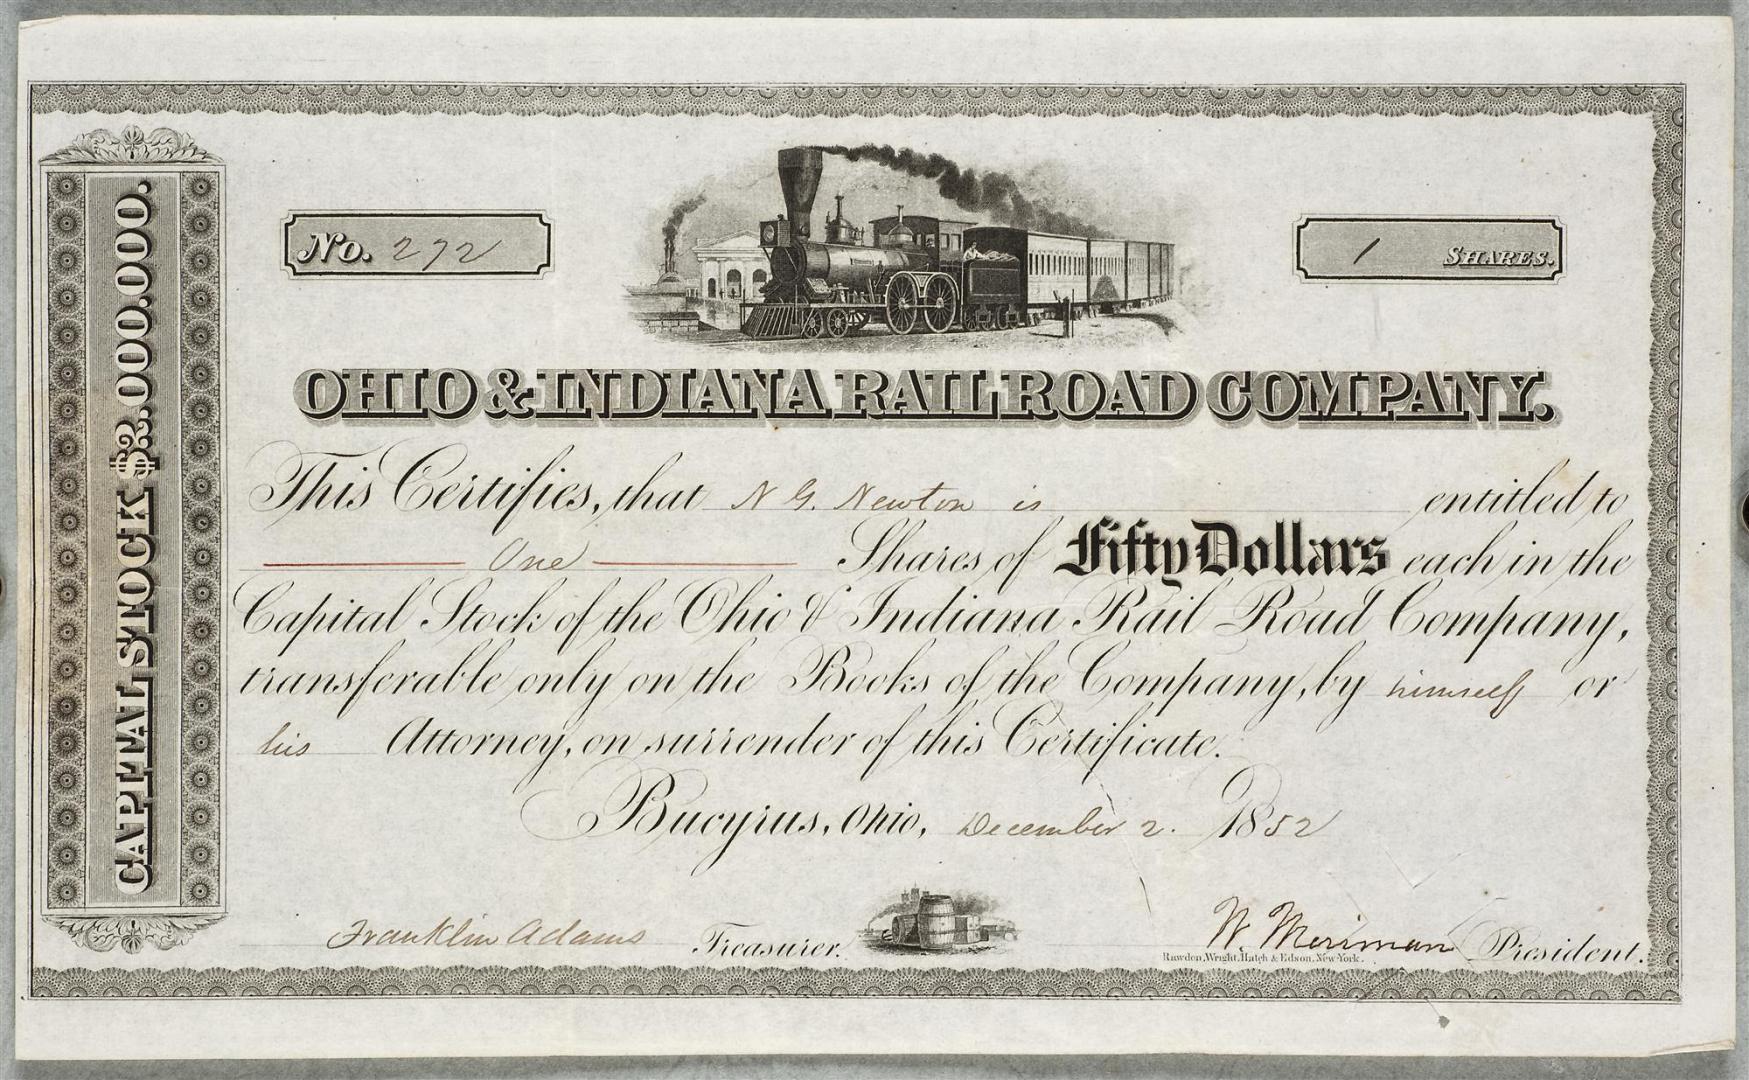 CAPITAL STOCK $2.000.000.
No. 272
1 SHARES.
OHIO & INDIANA RAIL ROAD COMPANY.
This Certifies, that N G. Newton is entitled to
One Shares of Fifty Dollars each in the
Capital Stock of the Ohio & Indiana Rail Road Company,
transferable only on the Books of the Company, by himself or
his Attorney, on surrender of this Certificate.
Bucyrus, Ohio, December 2. 1852
Franklin Adams Treasurer.
W. Merriman President.
Rawdon, Wright, Hatch & Edson, New-York.